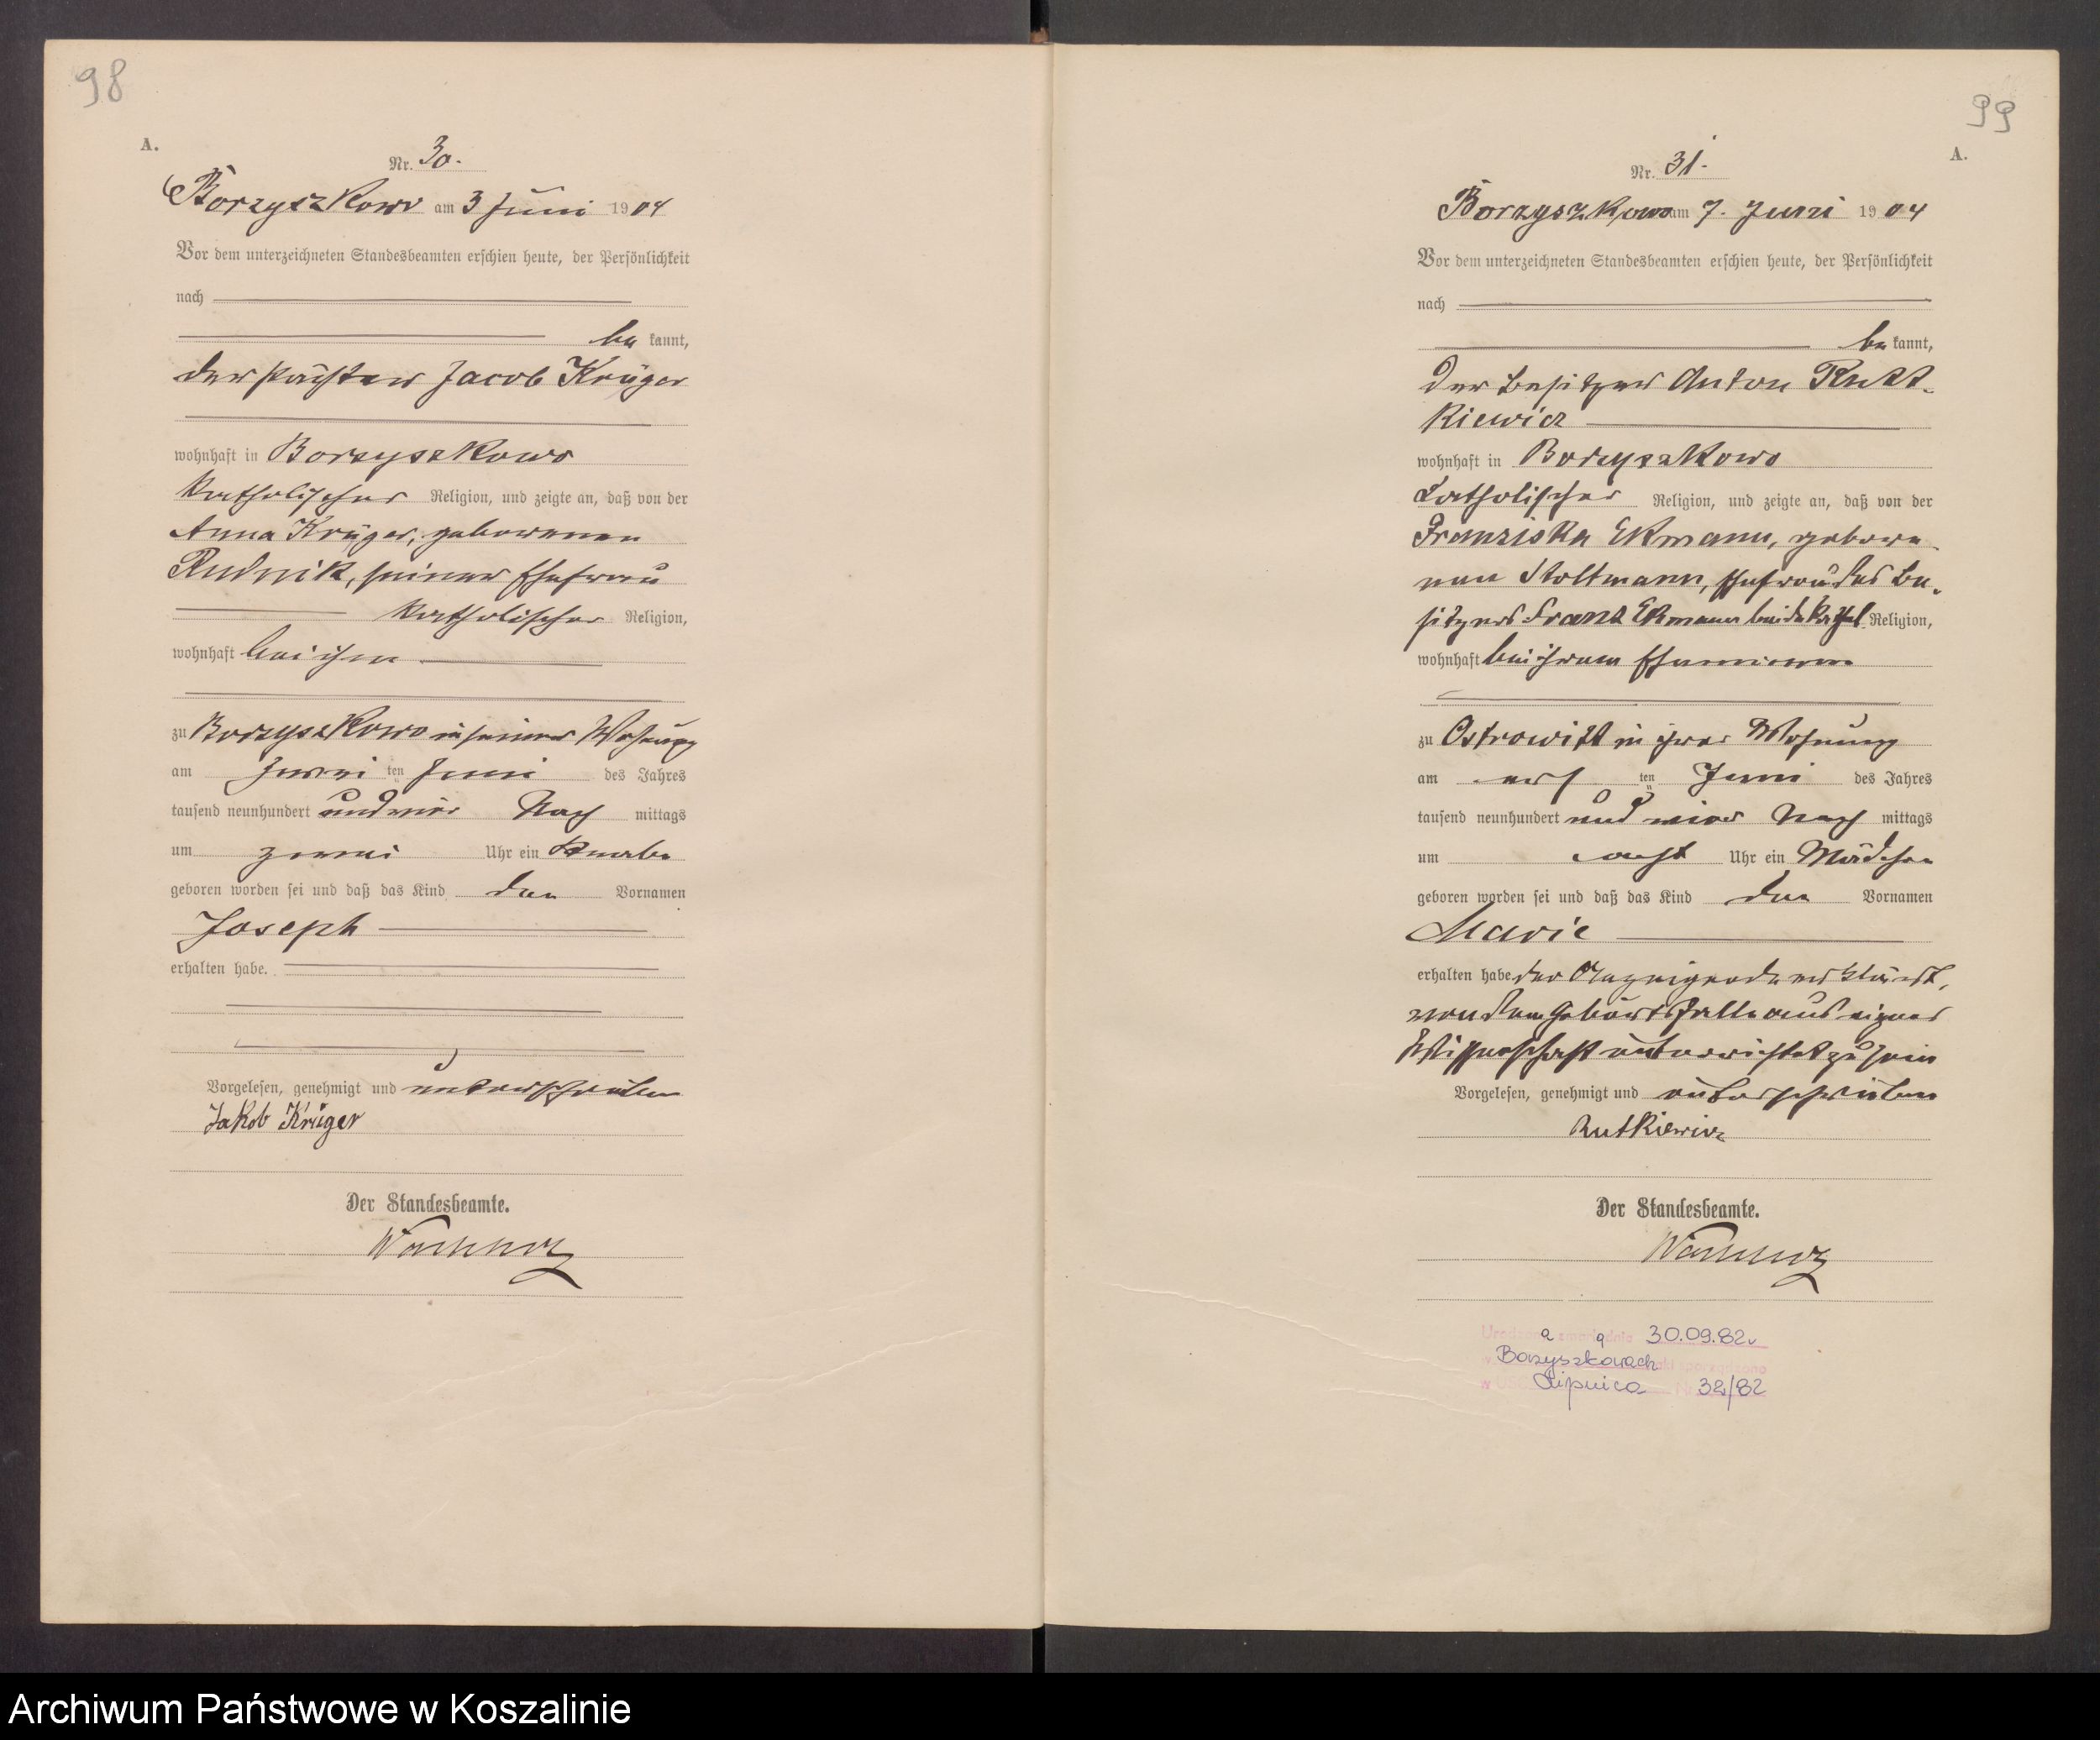 98
A.
Nr. 30.
Borzyszkowo am 3 Juni 1904
Vor dem unterzeichneten Standesbeamten erschien heute, der Persönlichkeit
nach
be kannt,
der Pächter Jacob Krüger
wohnhaft in Borzyszkowo
katholischer Religion, und zeigte an, daß von der
Anna Krüger, geborenen
Rudnik, seiner Ehefrau
katholischer Religion,
wohnhaft bei ihm
zu Borzyszkowo in seiner Wohnung
am zwei ten Juni des Jahres
tausend neunhundert und vier Nach mittags
um zwei Uhr ein Knabe
geboren worden sei und daß das Kind den Vornamen
Joseph
erhalten habe.
Vorgelesen, genehmigt und unterschrieben
Jakob Krüger
Der Standesbeamte.
99
A.
Nr. 31.
Borzyszkowo am 7. Juni 1904
Vor dem unterzeichneten Standesbeamten erschien heute, der Persönlichkeit
nach
be kannt,
der Besitzer Anton Rutt-
kiewicz
wohnhaft in Borzyszkowo
katholischer Religion, und zeigte an, daß von der
Franziska Ekmann, gebore-
nen Stoltmann, Ehefrau des Be-
sitzers Franz Ekmann beide kathol. Religion,
wohnhaft bei ihrem Ehemanne
zu Ostrowitt in ihrer Wohnung
am ten Juni des Jahres
tausend neunhundert und vier Nach mittags
um acht Uhr ein Mädchen
geboren worden sei und daß das Kind den Vornamen
Marie
erhalten habe der Anzeigende erklärt,
von dem Geburtsfalle aus eigner
Wissenschaft unterrichtet zu sein
Vorgelesen, genehmigt und unterschrieben
Rutkiewicz
Der Standesbeamte.
30.09.82
Borzyszkowach
w USC Lipnica Nr 32/82
Archiwum Państwowe w Koszalinie